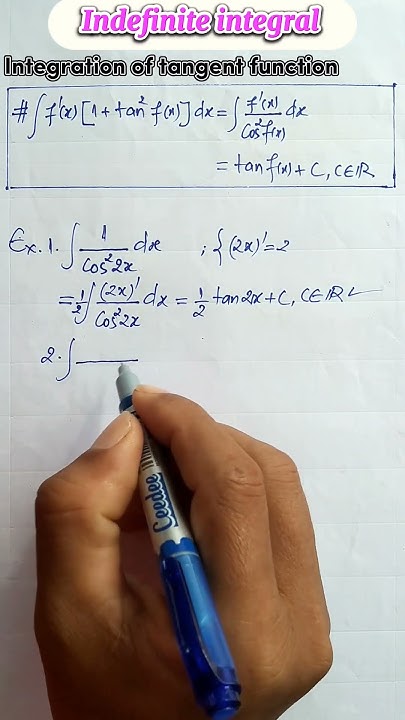 Indefinite integral
Integration of tangent function
# ∫ f'(x) [1 + tan² f(x)] dx = ∫ f'(x)/cos² f(x) dx
= tan f(x) + C, C∈ℝ
Ex. 1. ∫ 1/cos² 2x dx ; { (2x)' = 2
= 1/2 ∫ (2x)'/cos² 2x dx = 1/2 tan 2x + C, C∈ℝ ✓
2. ∫
Ceedee